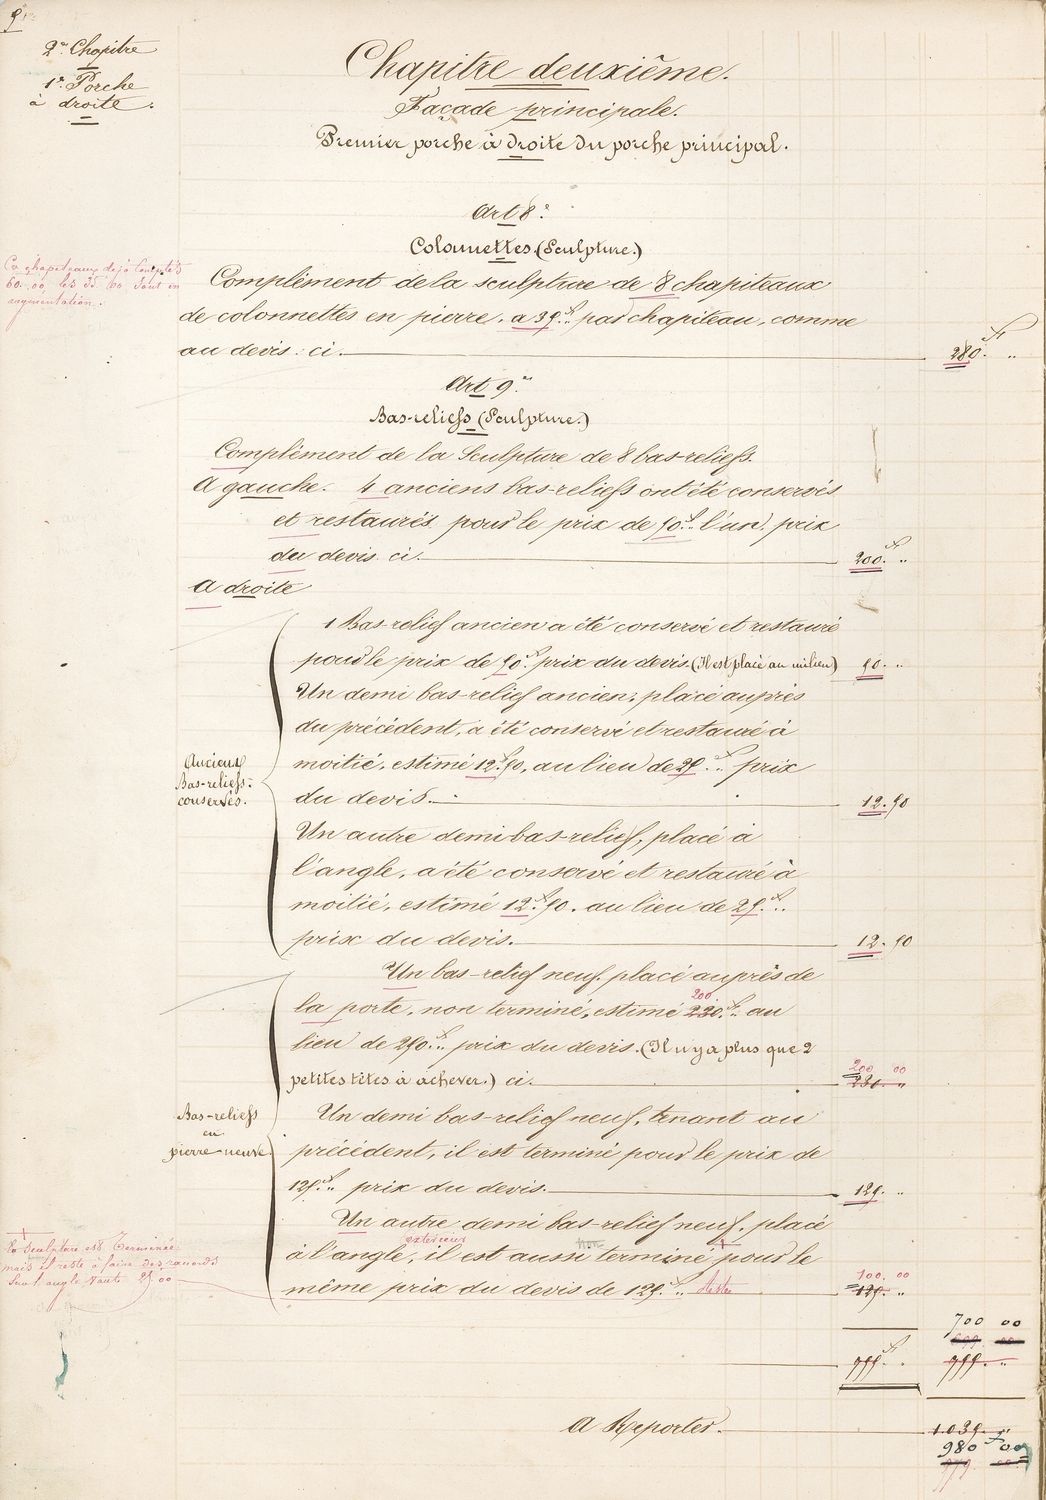 2e Chapitre
1r Porche
à droite.
Chapitre deuxième.
Façade principale.
Premier porche à droite du porche principal.
Art 8e
Colonnettes (Sculpture.)
Ce chapiteaux déjà comptés
60.00, les 35.00 sont en
augmentation.
Complément de la sculpture de 8 chapiteaux
de colonnettes en pierre, à 35f.. par chapiteau, comme
au devis: ci. 280.f ..
Art 9e
Bas-reliefs (Sculpture.)
Complément de la Sculpture de 8 bas-reliefs.
A gauche. 4 anciens bas-reliefs ont été conservés
et restaurés, pour le prix de 50f.. l'un, prix
du devis. ci. 200.f ..
A droite
1 Bas-relief ancien a été conservé et restauré
pour le prix de 50f.. prix du devis (Il est placé au milieu) 50. ..
Un demi bas-relief ancien, placé auprès
du précédent, a été conservé et restauré à
moitié, estimé 12f.50, au lieu de 25f.. prix
du devis. 12.50
Anciens
Bas-reliefs
conservés.
Un autre demi bas-relief, placé à
l'angle, a été conservé et restauré à
moitié, estimé 12f.50. au lieu de 25f..
prix du devis. 12.50
Un bas-relief neuf, placé auprès de
200
la porte, non terminé, estimé 230f.. au
lieu de 250f.. prix du devis. (Il n'y a plus que 2
200 00
petites têtes à achever.) ci. 230. ..
Bas-reliefs
en
pierre neuve
Un demi bas-relief neuf, tenant au
précédent, il est terminé pour le prix de
125f.. prix du devis. 125. ..
Un autre demi bas-relief neuf, placé
extérieur non
à l'angle, il est aussi terminé pour le
100. 00
même prix du devis de 125f.. 125. ..
la sculpture est terminée
mais il reste à faire des raccords
sur l'angle 25 00
700 00
755f. .. 755. ..
A Reporter. 1.035. ..
980 00